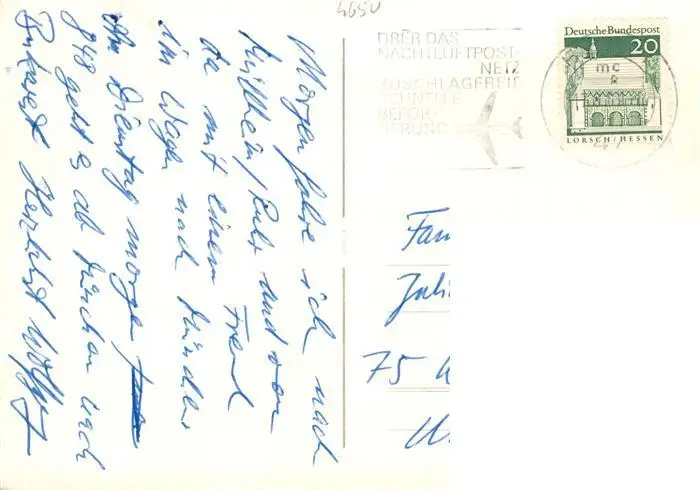 Morgen fahre ich nach
Mülheim/Ruhr und von
da mit einem Freund
im Wagen nach München
Am Dienstag morgen
848 geht es ab München nach
Bukarest Herzlichst Wolfg
465U
ÜBER DAS
NACHTLUFTPOST-
NETZ
ZUSCHLAGFREIE
SCHNELLE
BEFÖR-
DERUNG
Deutsche Bundespost
20
mc
LORSCH/HESSEN
Fam
Juli
75 K